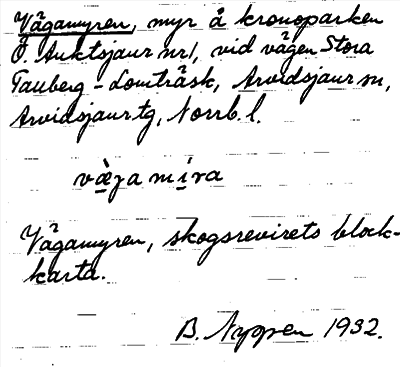 Vågamyren, myr å kronoparken
Ö. Auktsjaur nr 1, vid vägen Stora
Tauberg - Lomträsk, Arvidsjaur sn,
Arvidsjaur tg, Norrb. l.
vàga míra
Vågamyren, skogsrevirets block-
karta.
B. Nygren 1932.